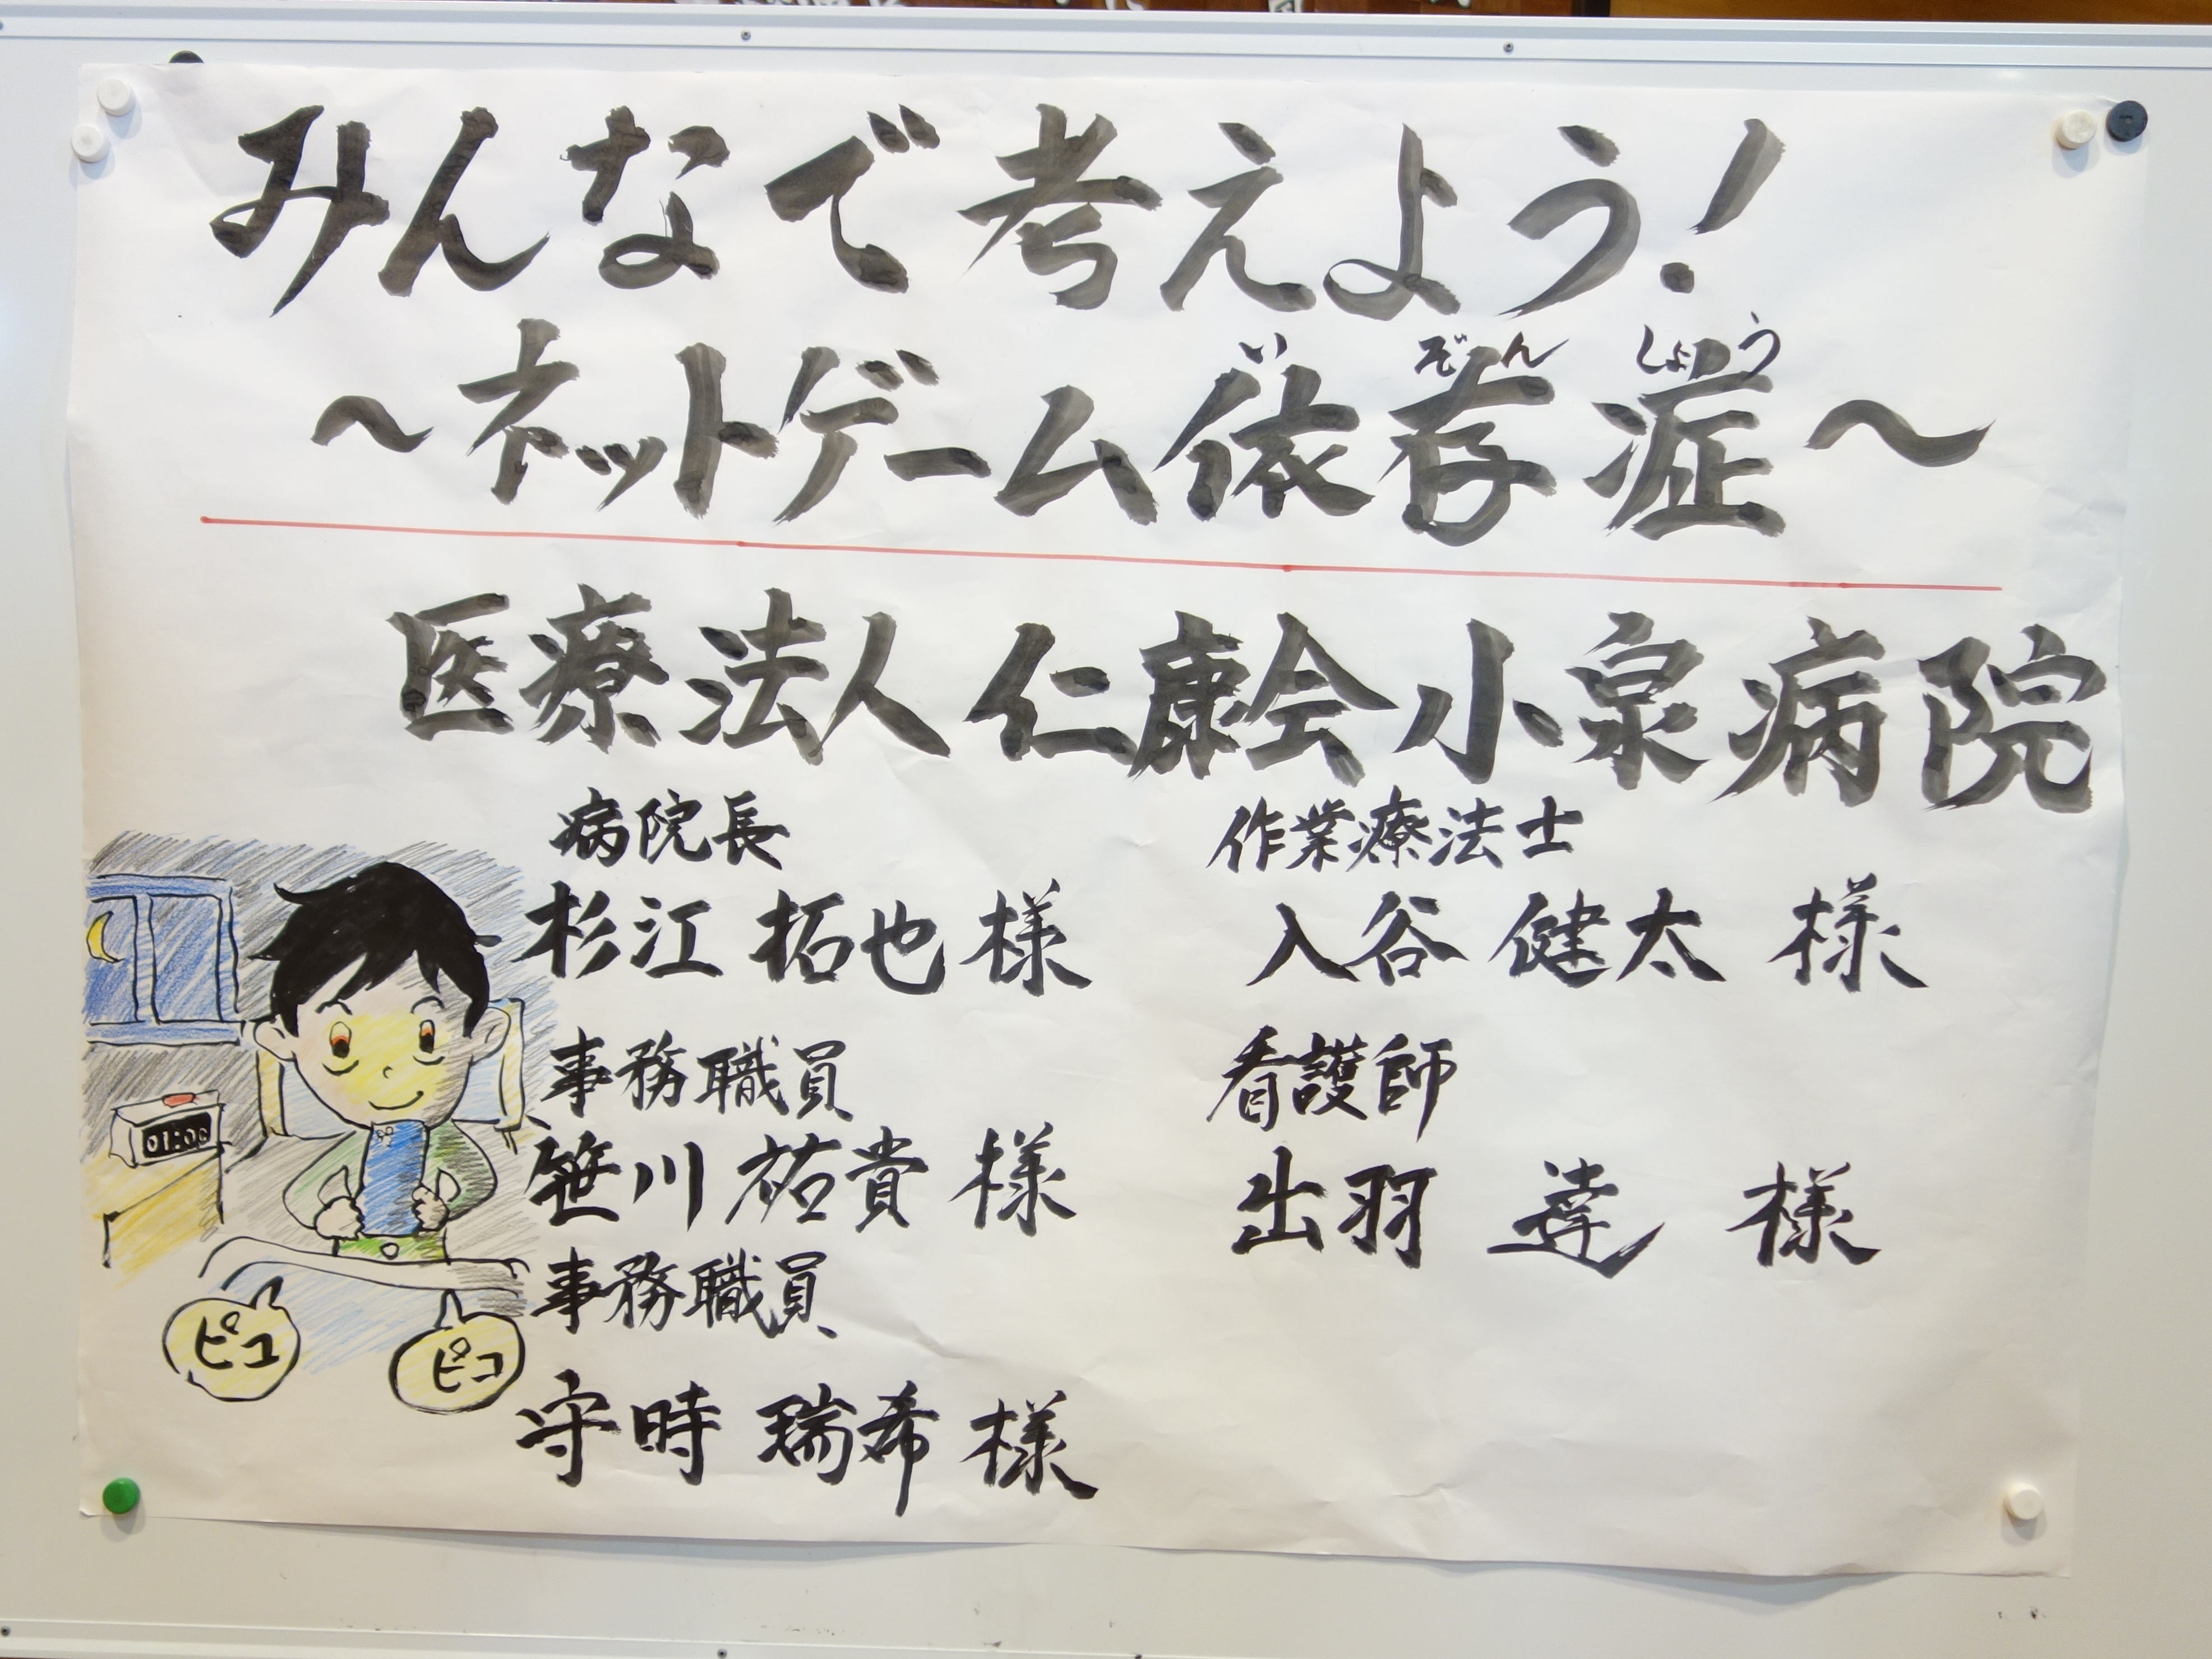 みんなで考えよう!
いぞんしょう
~ネットゲーム依存症~
医療法人仁康会小泉病院
病院長
杉江拓也様
事務職員
笹川祐貴様
事務職員
守時瑞希様
作業療法士
入谷健太様
看護師
出羽達様
01:00
ピコ
ピコ